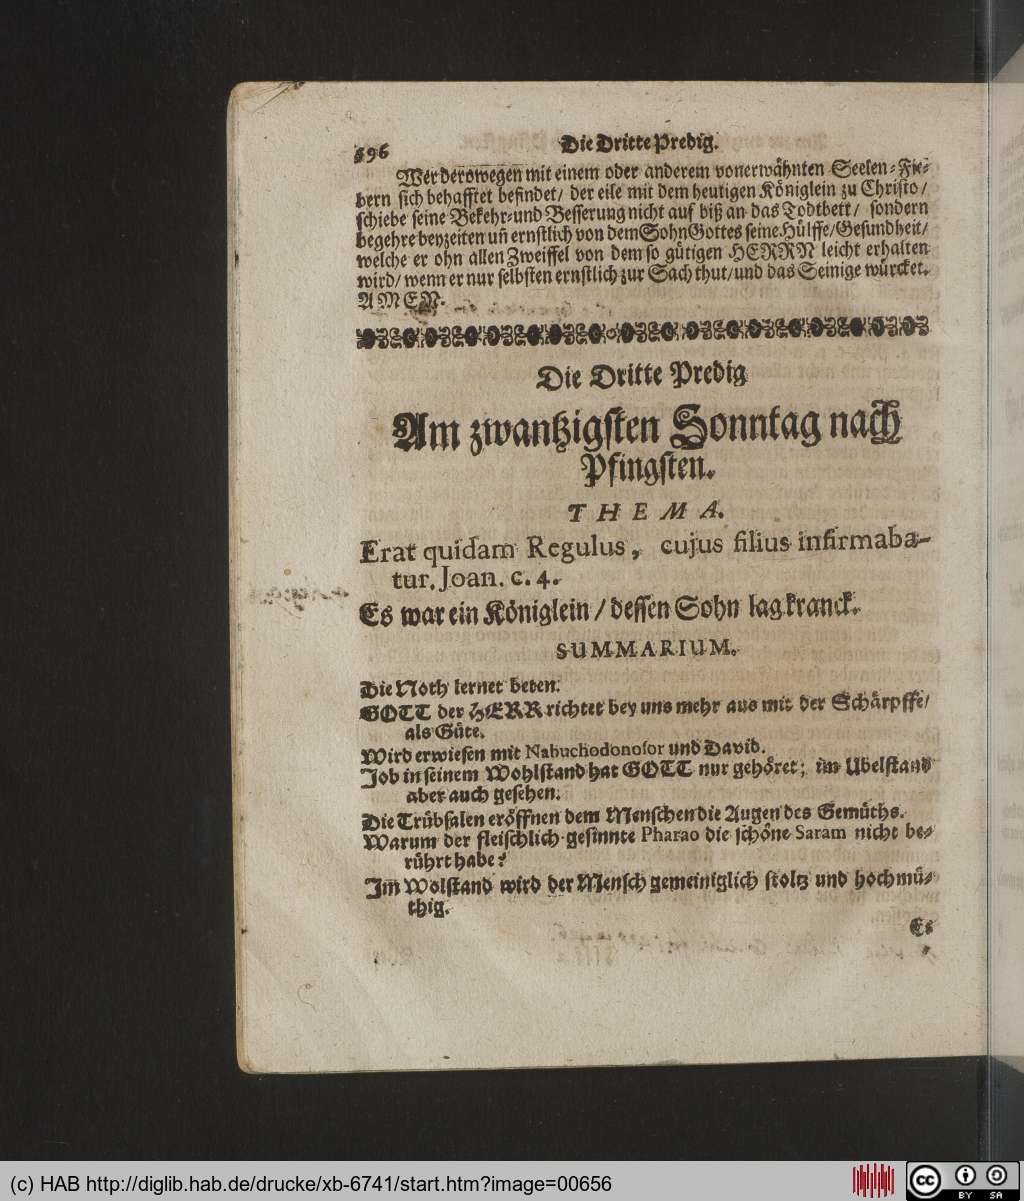 596
Die Dritte Predig.
Wer derowegen mit einem oder anderem vonerwähnten Seelen-Fie-
bern sich behafftet befindet/ der eile mit dem heutigen Königlein zu Christo/
schiebe seine Bekehr-und Besserung nicht auf biß an das Todtbett/ sondern
begehre beyzeiten uñ ernstlich von dem Sohn Gottes seine Hülffe/Gesundheit/
welche er ohn allen Zweiffel von dem so gütigen HERRN leicht erhalten
wird/ wenn er nur selbsten ernstlich zur Sach thut/und das Seinige würcket.
AMEN.
Die Dritte Predig
Am zwantzigsten Sonntag nach
Pfingsten.
THEMA.
Erat quidam Regulus, cujus filius infirmaba-
tur. Joan. c. 4.
Es war ein Königlein / dessen Sohn lag kranck.
SUMMARIUM.
Die Noth lernet beten.
GOTT der HERR richtet bey uns mehr aus mit der Schärpffe/
als Güte.
Wird erwiesen mit Nabuchodonosor und David.
Job in seinem Wohlstand hat GOTT nur gehöret; im Ubelstand
aber auch gesehen.
Die Trübsalen eröffnen dem Menschen die Augen des Gemüths.
Warum der fleischlich-gesinnte Pharao die schöne Saram nicht be-
rührt habe?
Im Wolstand wird der Mensch gemeiniglich stoltz und hochmü-
thig.
Es
(c) HAB http://diglib.hab.de/drucke/xb-6741/start.htm?image=00656
cc BY SA